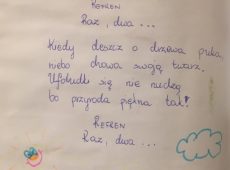 REFREN
Raz, dwa ...
Kiedy deszcz o drzewa puka,
niebo chowa swoją twarz.
Ufoludki się nie nudzą
bo przyroda piękna tak!
REFREN
Raz, dwa ...